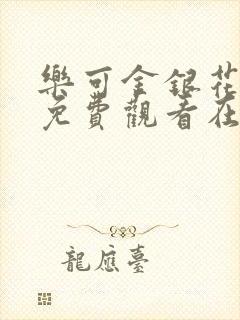 樂可金銀花
免費觀看在
龍應臺